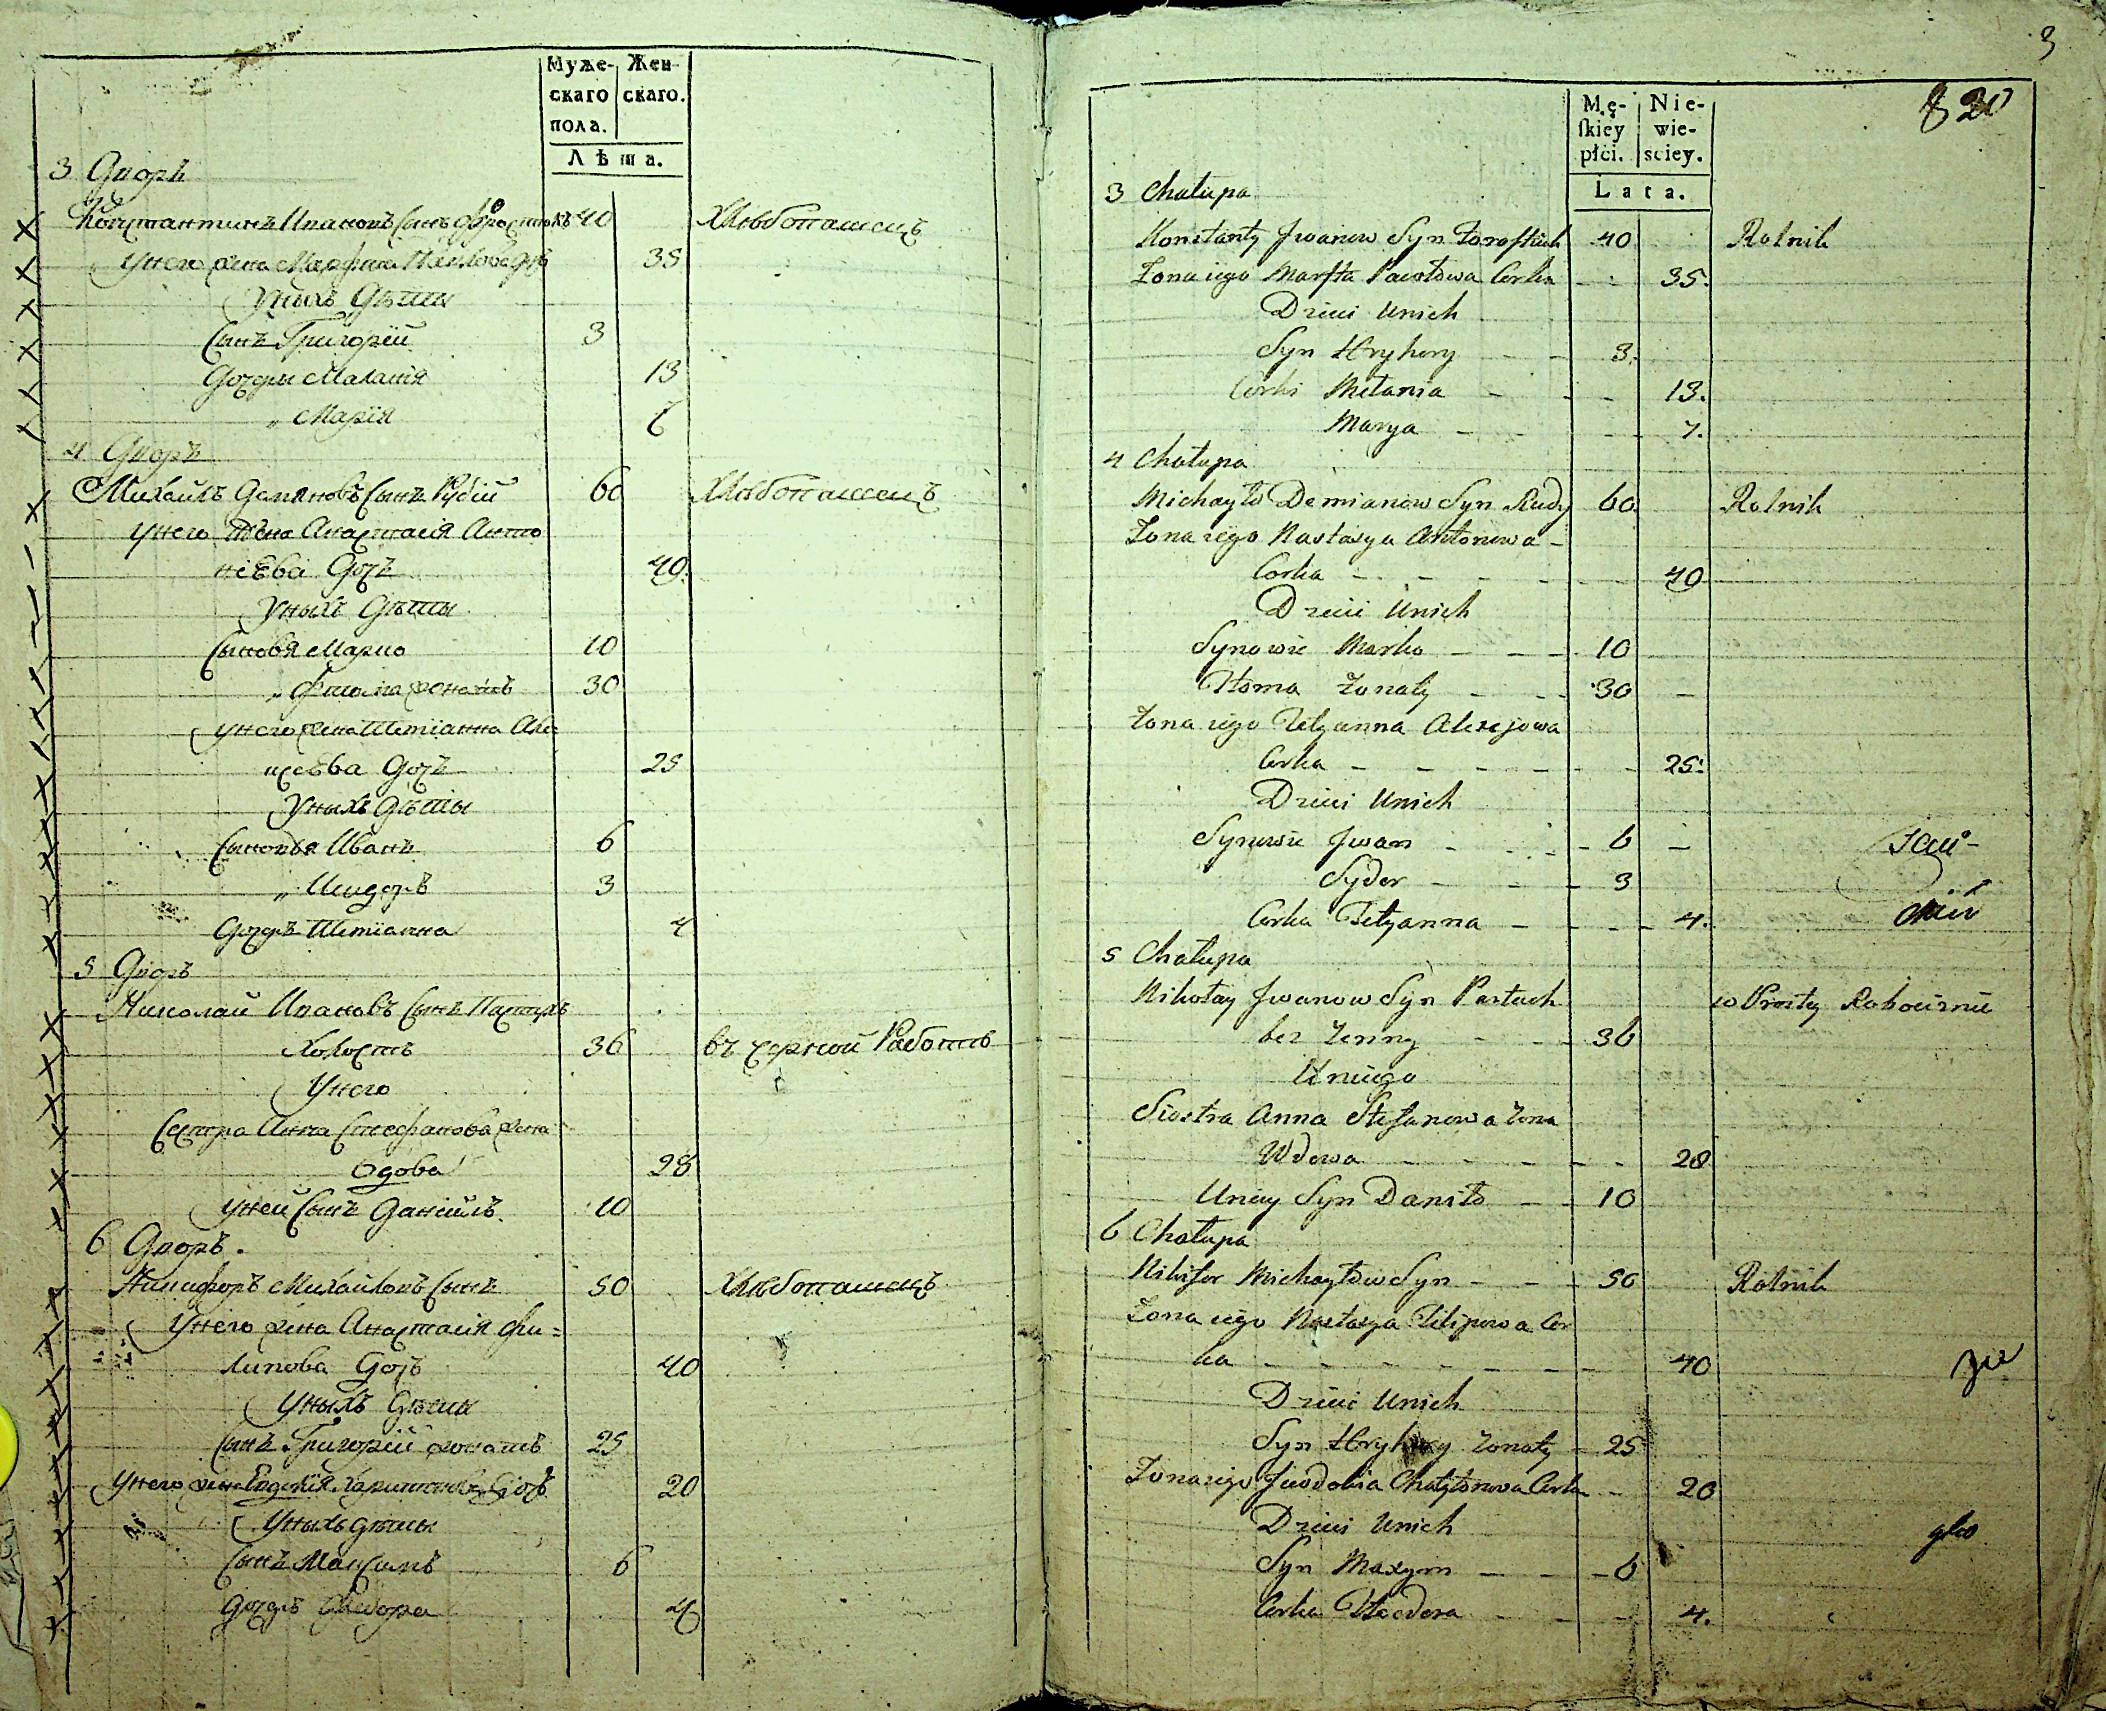 Муже-
скаго
пола.
Жен-
скаго.
Лѣта.
3 Дворъ
Константинъ Ивановъ Сынъ 40 Хлѣбопашецъ
У него жена Марфа Павлова доч 35
У нихъ Дѣти
Сынъ Григорій 3
Дочери Маланія 13
„ Марія
4 Дворъ
Михайлъ Дамяновъ Сынъ Рудій 60 Хлѣбопашецъ
У него жена Анастасія Анто
ніева Дочъ 40
У ныхъ Дѣты
Сыновя Марко 10
„ Фома женатъ 30
У него жена Тетіанна Але
ксѣева Дочъ 25
У ныхъ Дѣты
Сыновья Иванъ 6
„ Исидоръ 3
Дочеръ Тетіанна 4
5 Дворъ
Николай Ивановъ Сынъ Пастухъ
Холостъ 36 въ черной Работѣ
У него
Сестра Анна Стефанова жена
вдова 28
У ней Сынъ Даніилъ 10
6 Дворъ.
Никифоръ Михайловъ Сынъ 50 Хлѣбопашецъ
У него жена Анастасія Фи=
липова Дочъ 40
У ныхъ Дѣты
Сынъ Григорій женатъ 25
У него жена Евдокія Харитонова Дочъ 20
У ныхъ дѣты
Сынъ Максимъ 6
Дочеръ Федора 4
3
820
Mę-
skiey
płci.
Nie-
wie-
sciey.
Lata.
3 Chałupa
Konstanty Jwanow Syn 40 Rolnik
Żona iego Marfta Pawłowa Corka 35.
Dzieci Unich
Syn Hryhory 3.
Corki Mełania 13.
Marya 7.
4 Chałupa
Michayło Demianow Syn Rudy 60 Rolnik
Żona iego Nastasya Antonowa
Corka 40
Dzieci Unich
Synowie Marko 10
Thoma Żonaty 30
Żona iego Tetyanna Alexejowa
Corka 25.
Dzieci Unich
Synowie Jwan 6
Sydor 3
Corka Tetyanna 4.
5 Chałupa
Nikołay Jwanow Syn Pastuch w Prostey Robociznie
bez Żenny 36
Uniego
Siostra Anna Stefanowa Żona
Wdowa 28
Uniey Syn Daniło 10
6 Chałupa
Nikifor Michayłow Syn 50 Rolnik
Żona iego Nastasya Filipowa Cor
ka 40
Dzieci Unich
Syn Hryhory Żonaty 25
Żona iego Jewdokia Corka 20
Dzieci Unich
Syn Maxym 6
Corka Theodora 4.